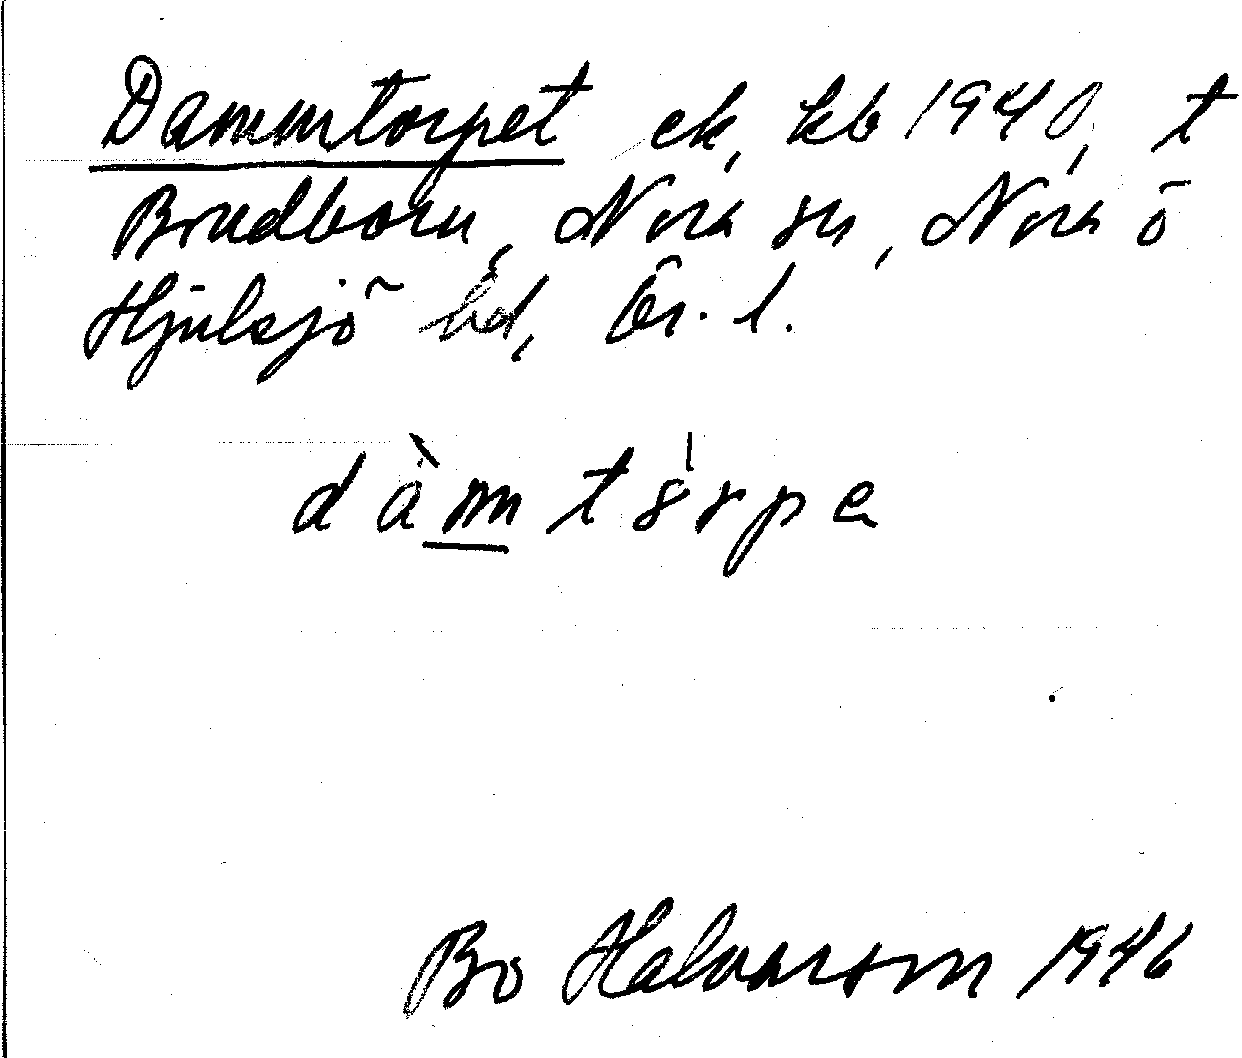 Dammtorpet ek, kb 1940, t
Bredborn, Nora sn, Nora o
Hjulsjö bd, Ör. l.
dàmtȯrpe
Bo Halvarson 1946